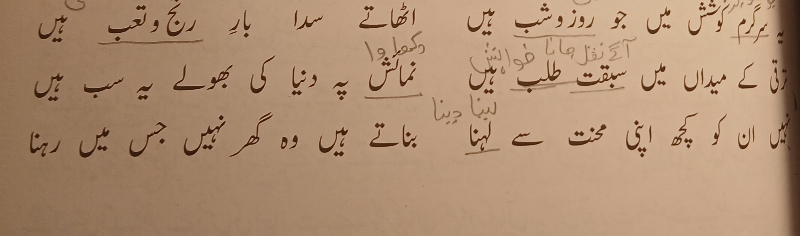 یہ سرگرم کوشش میں جو روز و شب ہیں اٹھاتے سدا بارِ رنج و تعب ہیں
دکھاوا آگے نکل جانا خواہش
ترقی کے میداں میں سبقت طلب ہیں نمائش پہ دنیا کی بھولے یہ سب ہیں
لینا دینا
نہیں ان کو کچھ اپنی محنت سے لہنا بناتے ہیں وہ گھر نہیں جس میں رہنا